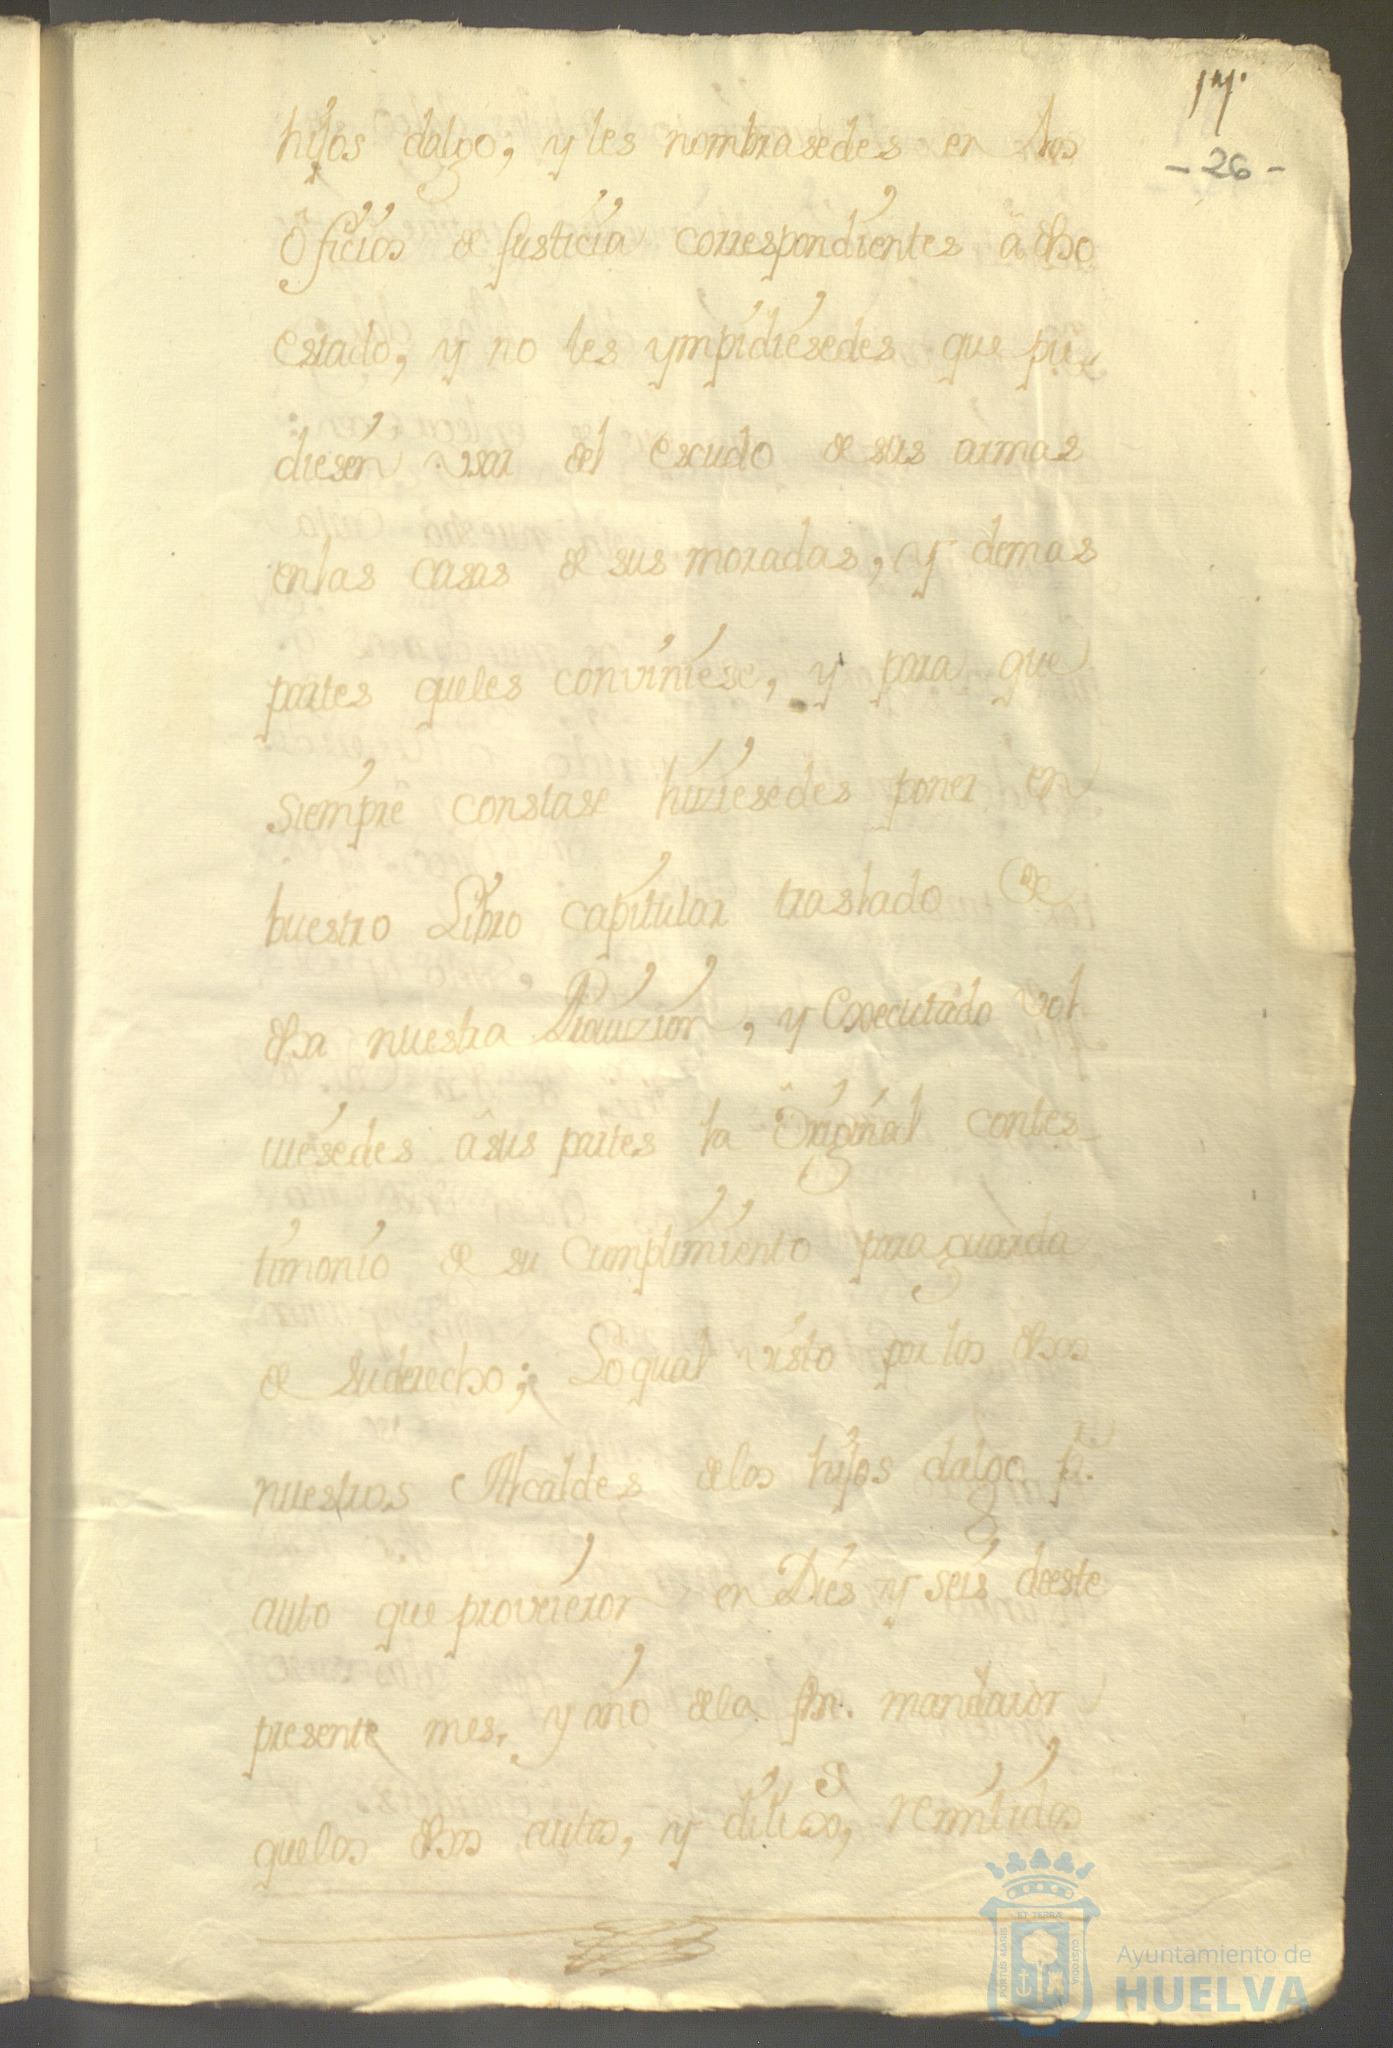 17.
- 26 -
hijos dalgo; y les nombrasedes en los
ôficios de Justicia correspondientes, â dho
estado, y no les ympidiesedes que pu
diesen vsar del escudo de sus armas
enlas casas de sus moradas, y demas
partes queles conviniese, y para que
siempre constase hiziesedes poner en
buestro Libro capitular traslado de
dha nuestra Prouizion, y Executado vol
uiesedes âsus partes la Original contes-
timonio de su cumplimiento para guarda
de suderecho; Loqual visto por los dhos
nuestros Alcaldes delos hijos dalgo p.r
auto que proveieron en Dies y seis deeste
presente mes, y año dela fha. mandaron
quelos dhos autos, y dilig.s, remitidos
ET TERRÆ
PORTUS MARIS
CUSTODIA
Ayuntamiento de
HUELVA